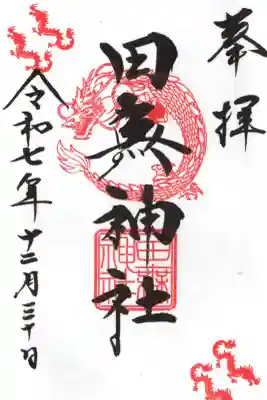 奉拝
田無神社
令和七年十二月三十日
田無神社